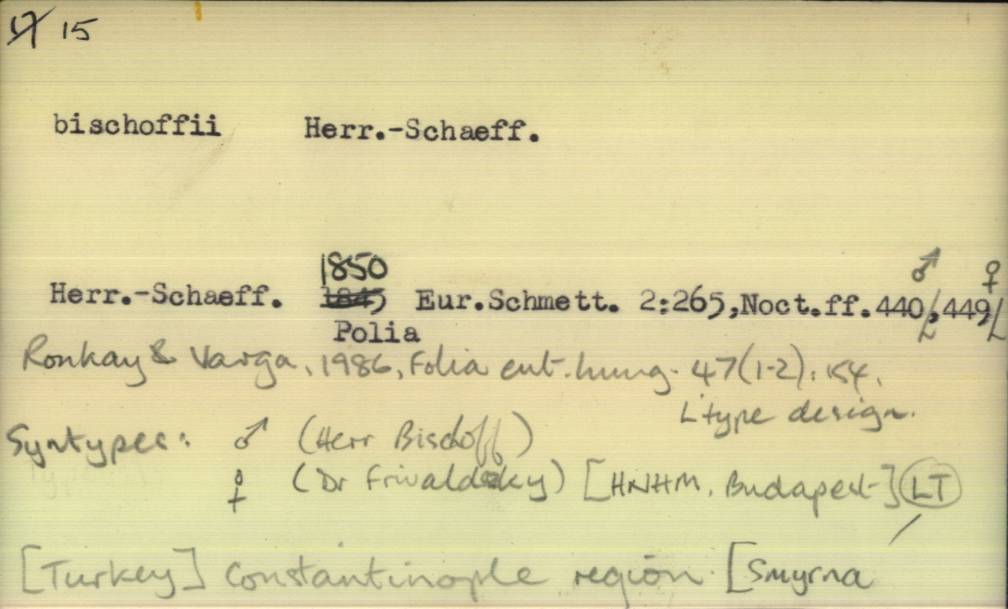 15
bischoffii Herr.-Schaeff.
1850
♂ ♀
Herr.-Schaeff. 1845 Eur.Schmett. 2:265,Noct.ff.440,449
Polia
Ronkay & Varga, 1986, Folia ent. hung. 47(1-2):154.
L'type design.
Syntypes: ♂ (Herr Bischoff)
♀ (Dr Frivaldsky) [HNHM, Budapest] LT
[Turkey] Constantinople region. [Smyrna